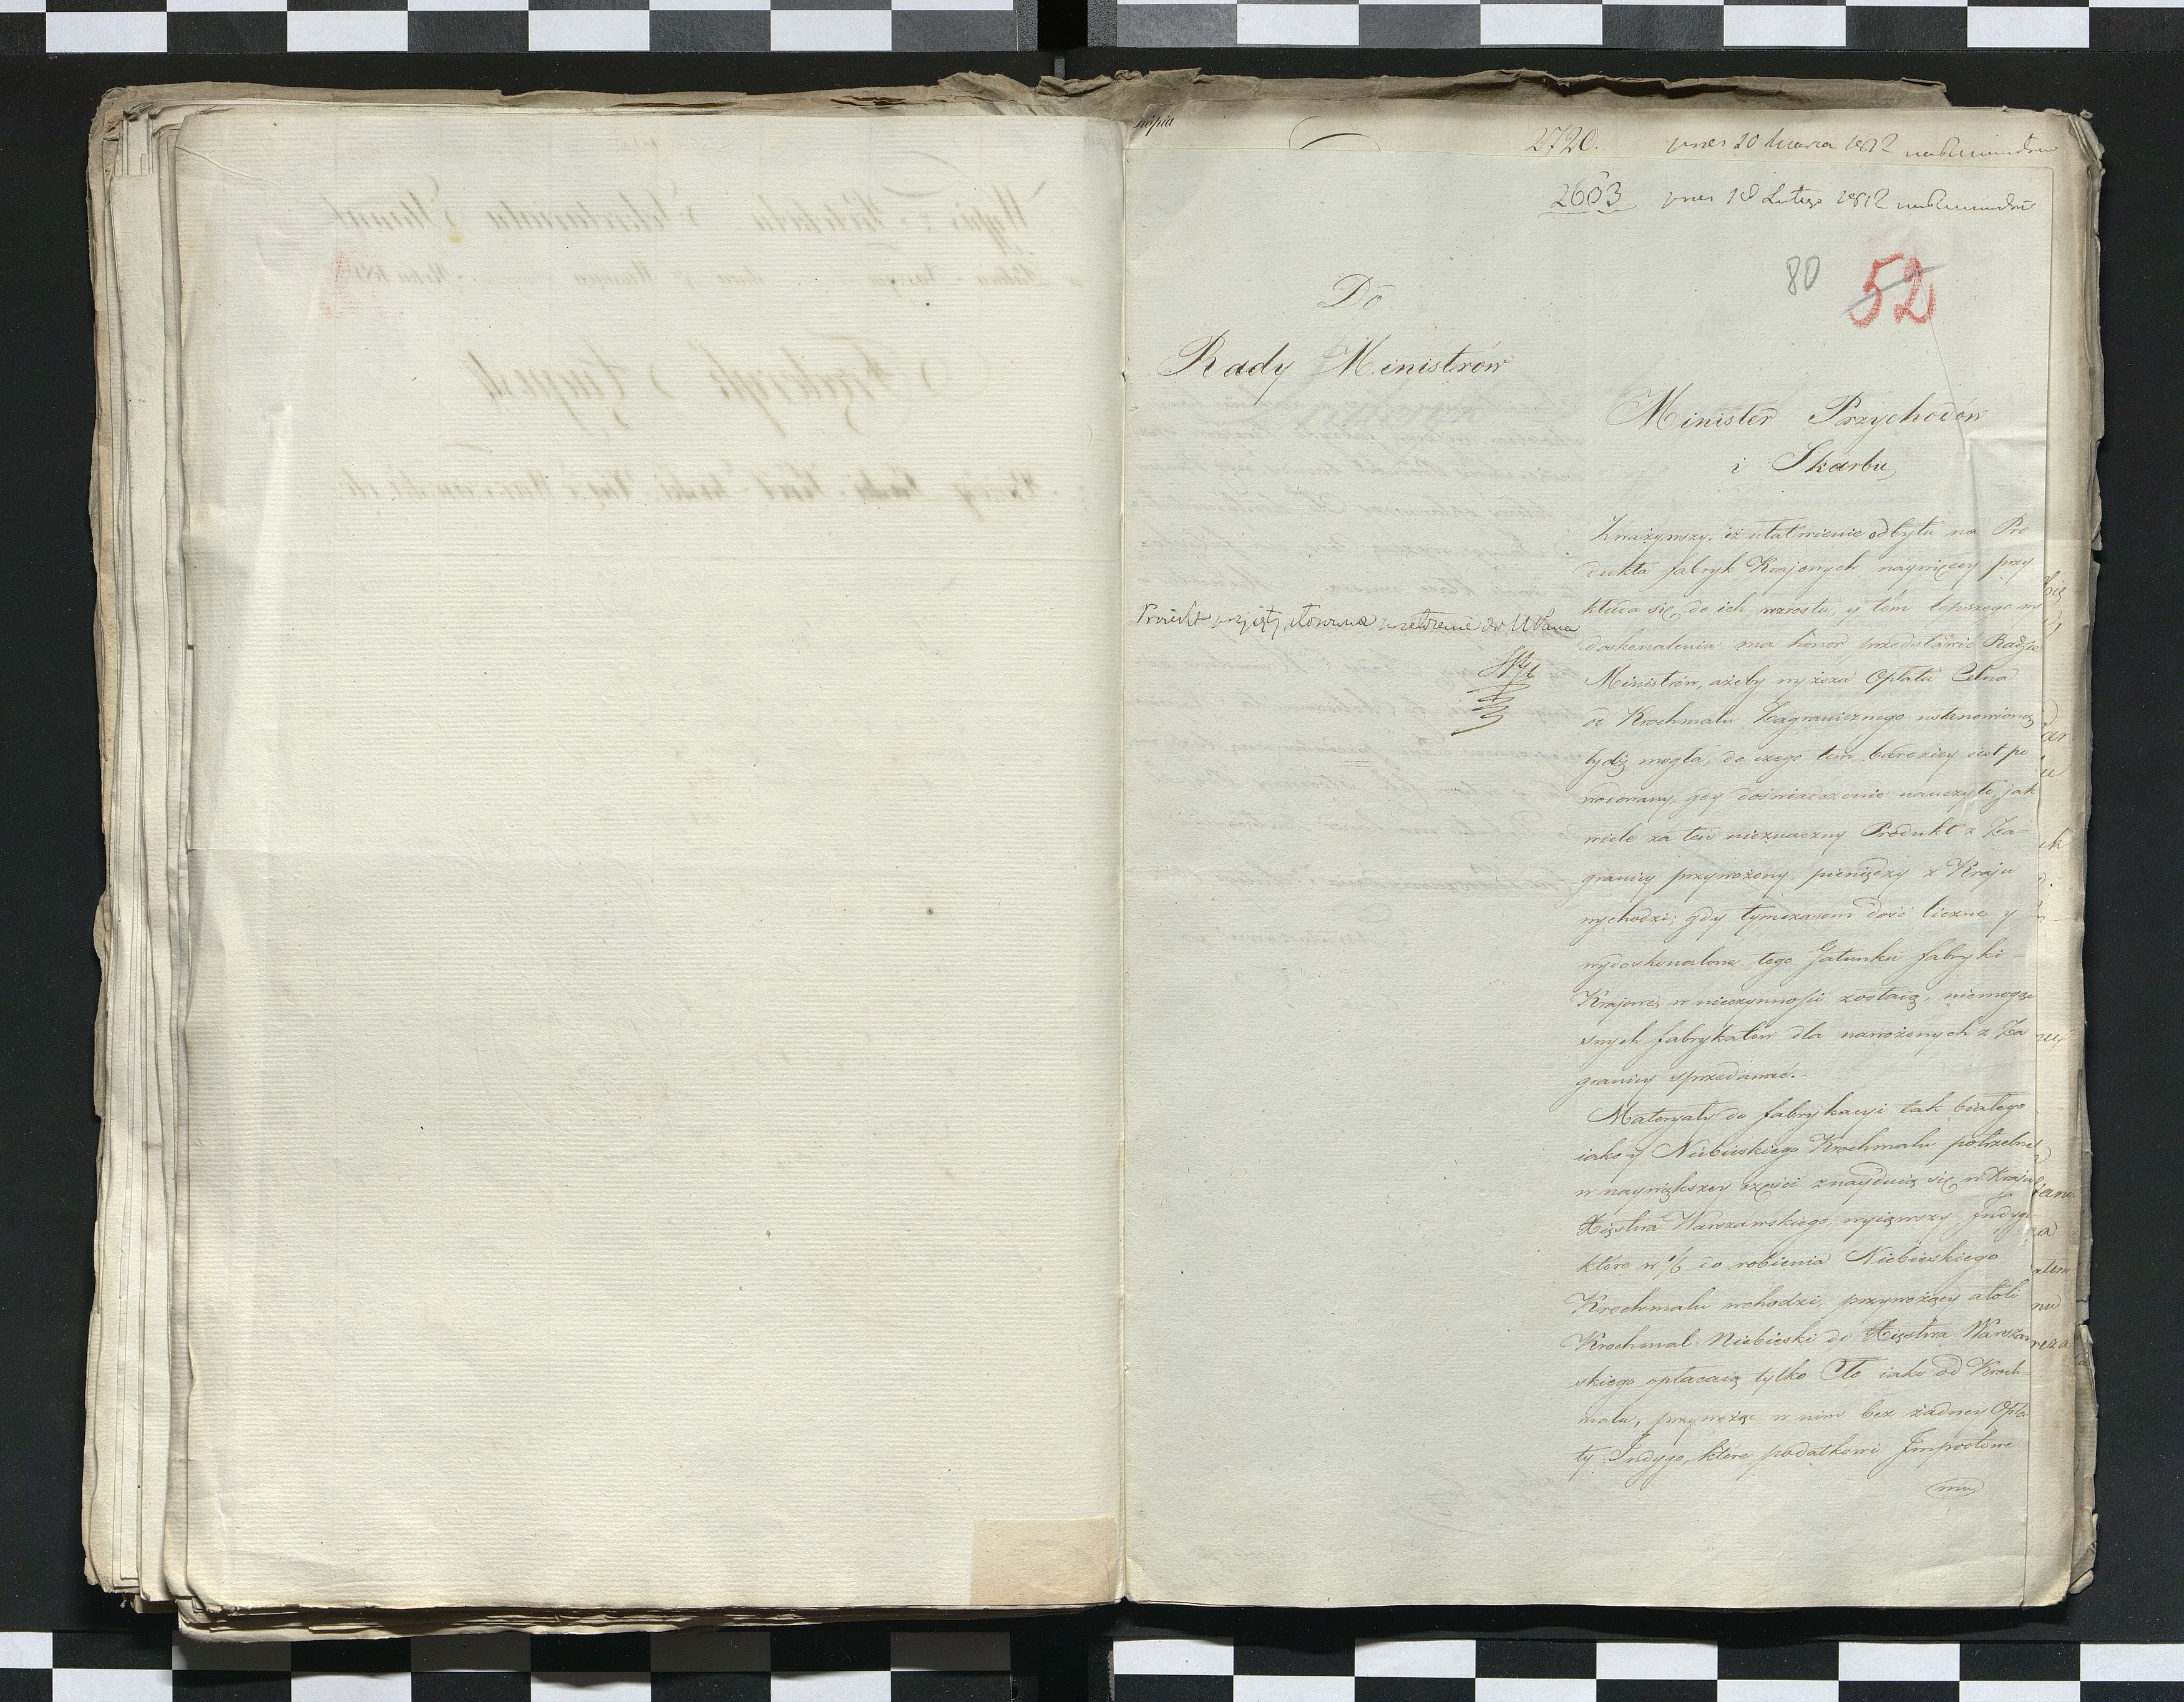 kópia
2720. 20 Marca 1812
2603 18 Lutego 1812
80 52
Do
Rady Ministrów
Minister Przychodów
i Skarbu,
Zważywszy, iż ułatwienie odbytu na Pro
dukta fabryk Krajowych naywięcey przy
kłada się do ich wzrostu, y tém lepszego wy
doskonalenia ma honor przedstawić Radzie
Ministrów, ażeby wyższa Opłata Celna
od Krochmalu Zagranicznego ustanowioną
bydź mogła, do czego tem bardziey iest po
wodowany, gdy doświadczenie nauczyło, jak
wiele za ten nieznaczny Produkt z Za-
granicy przywożony pieniędzy z Kraju
wychodzi; gdy tymczasem dość liczne y
wydoskonalone tego Gatunku fabryki
Krajowe, w nieczynności zostaią, niemogąc
swych fabrykatów dla nawożonych z Za
granicy sprzedawać.-
Materyały do fabrykacyi tak białego
iako y Niebieskiego Krochmalu potrzebne
w naywiększey części znayduią się w Kraju
Xięstwa Warszawskiego, wyiąwszy Indygo
które w 1/6 do robienia Niebieskiego
Krochmalu wchodzi, przywożący atoli
Krochmal Niebieski do Xięstwa Warszaw
skiego opłacaią tylko Cło iako od Kroch-
malu, przywożąc w nim bez żadney Opła
ty Indygo, które podatkowi Impostowe
mu
Projekt przyjęty, stosowne